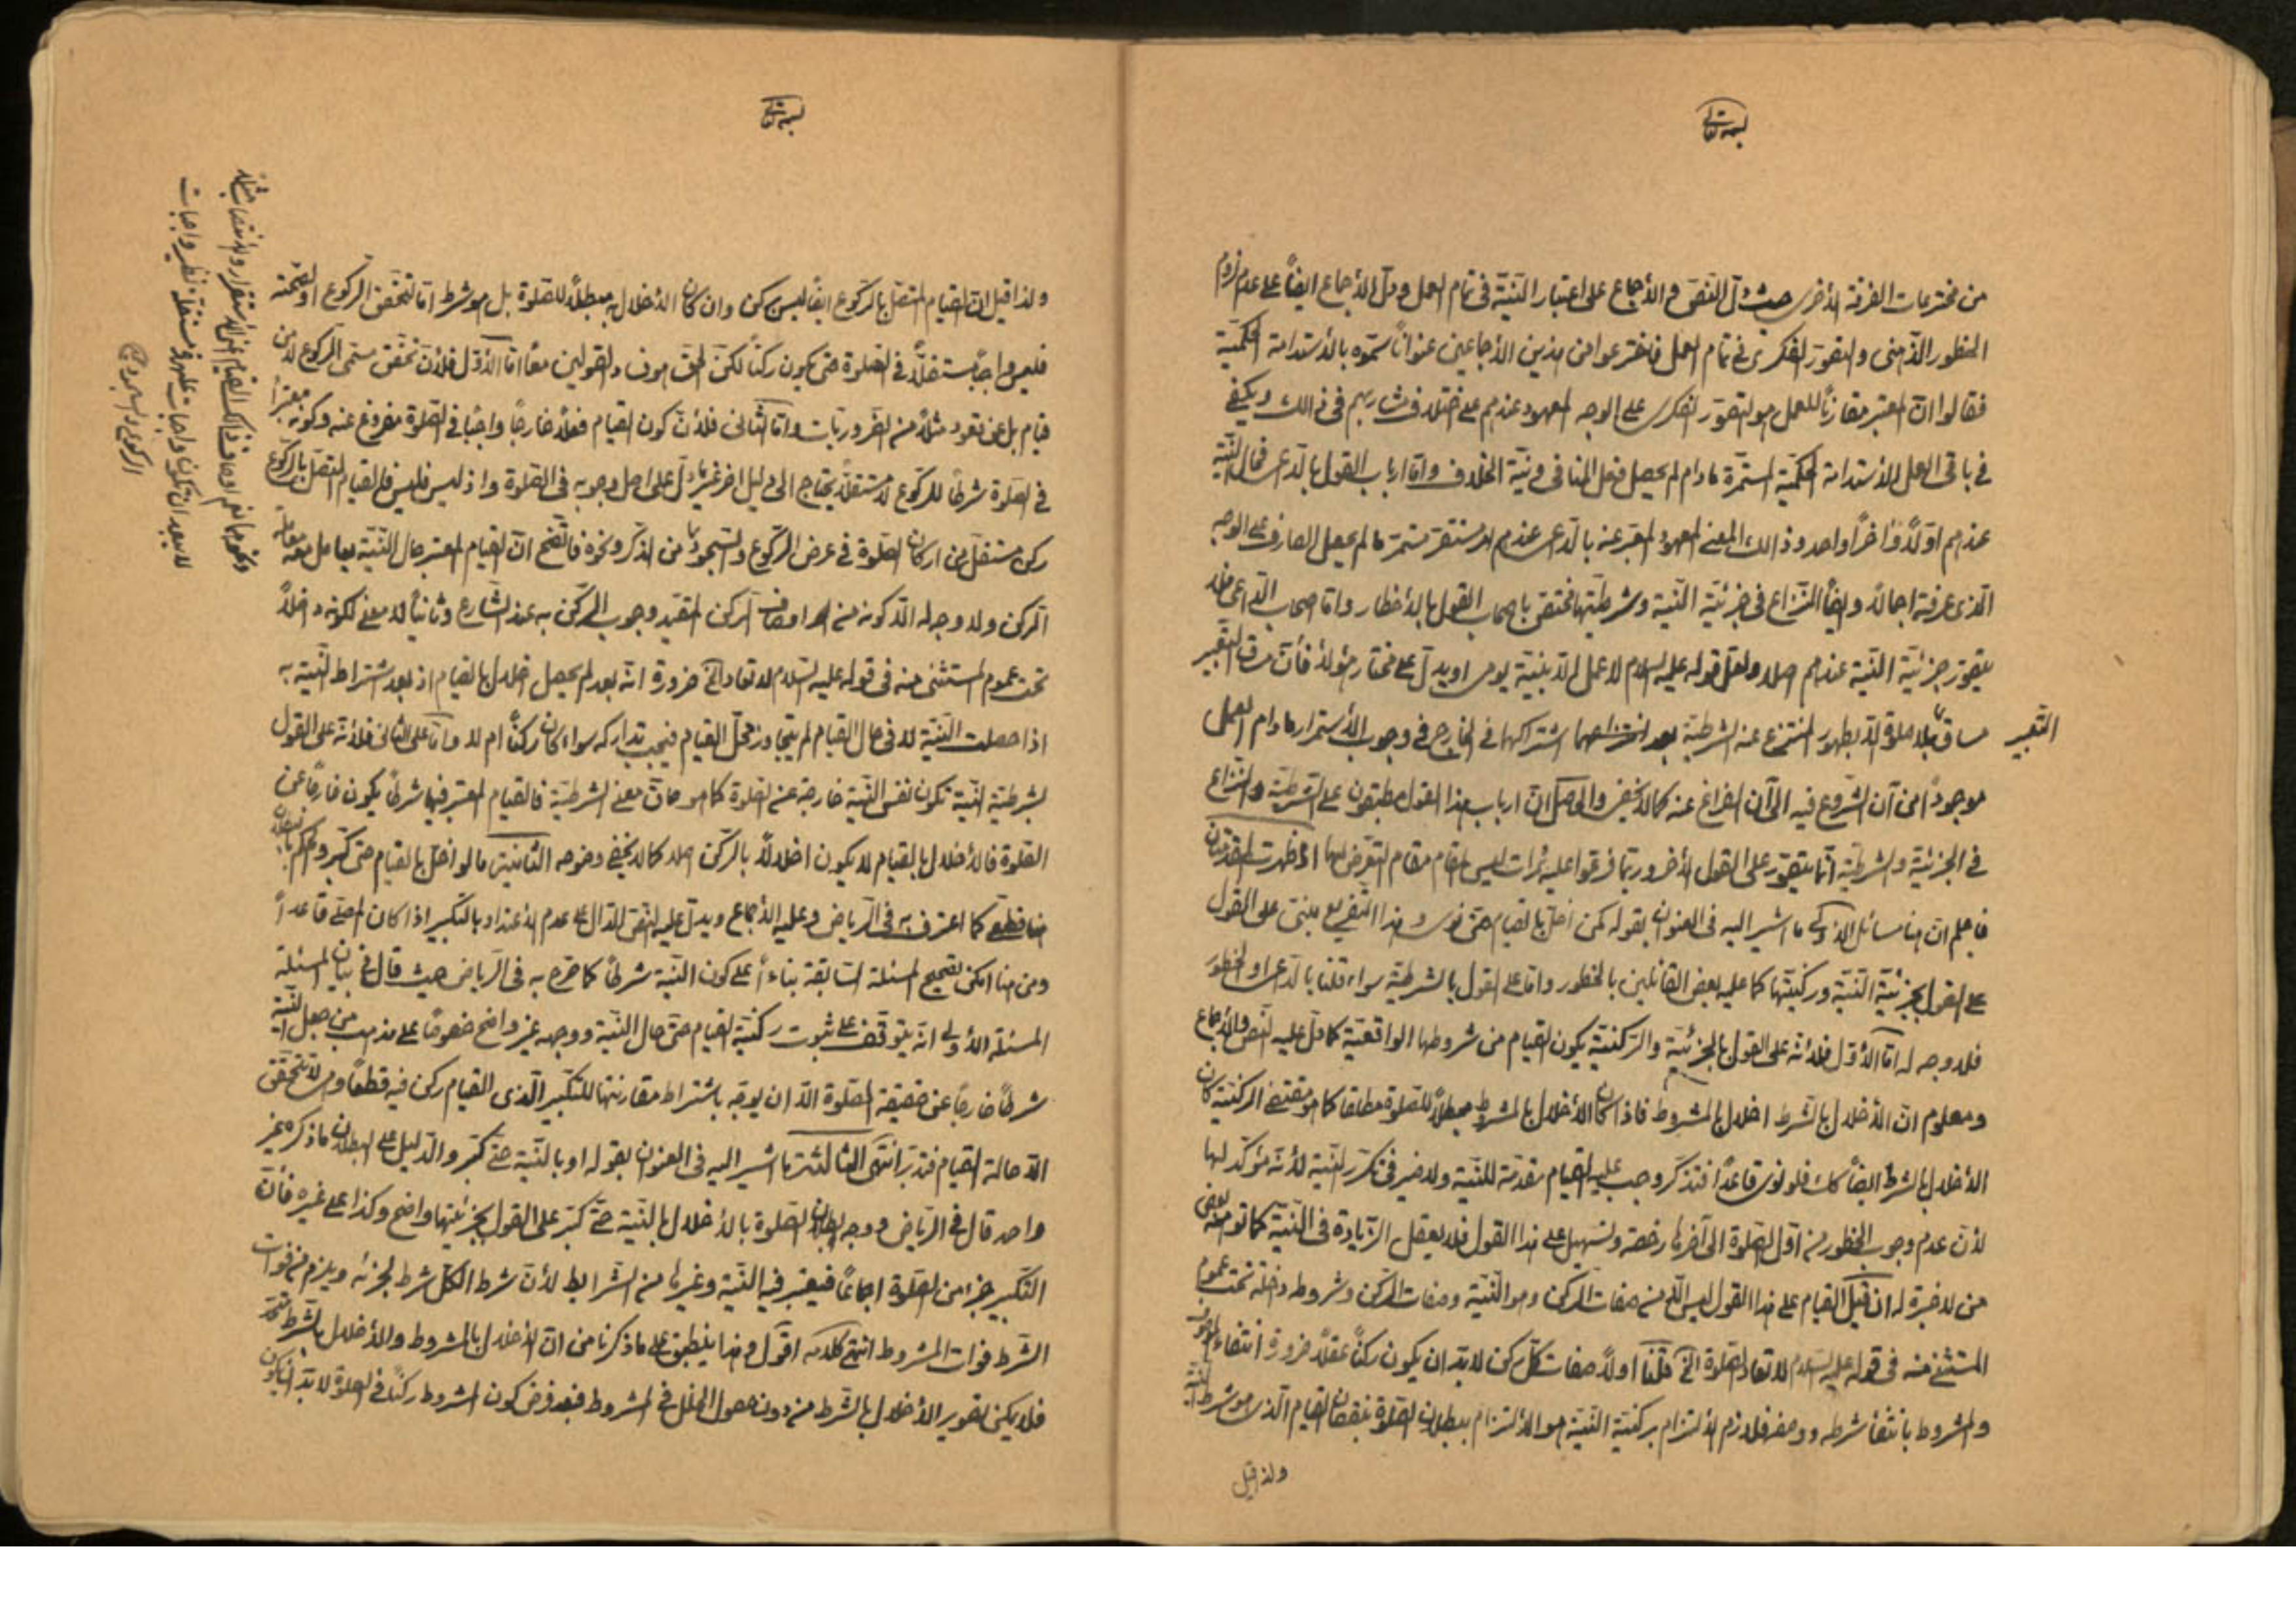 بسمه تعالى
من مخترعات الفرقة الأخرى حيث دلّ النصّ والأجماع على اعتبار النيّة فى تمام العمل ودلّ الأجماع ايضاً على عدم لزوم
الخطور الذّهنى والتصوّر الفكرى فى تمام العمل فاخترعوا من هذين الأجماعين عنواناً سمّوه بالأستدامة الحكميّة
فقالوا انّ المعتبر مقارناً للعمل هو التصوّر الفكرى على الوجه المعهود عندهم على اختلاف مشاربهم فى ذالك ويكفى
فى باقى العمل الأستدامة الحكميّة المستمرّة مادام لم يحصل فعل المنافى ونيّة الخلاف وامّا ارباب القول بالدّاعى فحال النيّة
عندهم اوّلاً وآخراً واحد وذالك المعنى المعهود المعبّر عنه بالدّاعى عندهم امر مستقرّ مستمرّ مالم يحصل الصارف على الوجه
الّذى عرفته اجمالاً وايضاً النّزاع فى جزئيّة النيّة وشرطيّتها مختصّ باصحاب القول بالأخطار وامّا اصحاب الدّاعى فلا
يتصوّر جزئيّة النيّة عندهم اصلا ولعلّ قوله عليه السلام لا عمل الّا بنيّة يومى او يدلّ على مختار هؤلاء فأنّ مساق التعبير
مساق لا صلوة الّا بطهور المنتزع عنه الشرطيّة بعد اشتراكهما فى الخارج فى وجوب الأستمرار مادام العمل
التعبير
موجوداً من آن الشّروع فيه الى آن الفراغ عنه كما لا يخفى والحاصل انّ ارباب هذا القول مطبقون على الشرطيّة والنّزاع
فى الجزئيّة والشرطيّة انّما يتصوّر على القول الأخر وربّما فرّعوا عليه ثمرات ليس المقام مقام التعرّض لها اذا ظهرت المقدّمتان
فاعلم انّ هنا مسائل الأولى ما اشير اليه فى العنوان بقوله كمن اخلّ بالقيام حتّى نوى وهذا التفريع مبنىّ على القول
على القول بجزئيّة النيّة وركنيّتها كما عليه بعض القائلين بالخطور وامّا على القول بالشرطيّة سواء قلنا بالدّاعى او الخطور
فلا وجه له امّا الأوّل فلأنّه على القول بالجزئيّة والركنيّة يكون القيام من شروطها الواقعيّة كما دلّ عليه النصّ والأجماع
ومعلوم انّ الأخلال بالشرط اخلال بالمشروط فاذا كان الأخلال بالمشروط مبطلاً للصلوة مطلقا كما هو مقتضى الركنيّة كان
الأخلال بالشرط ايضاً كك فلو نوى قاعداً فتذكّر وجب عليه القيام مقدّمة للنيّة ولا ضير فى تكرّر النيّة لأنّه مؤكّد لها
لأنّ عدم وجوب الخطور من اوّل الصلوة الى آخرها رخصة وتسهيل على هذا القول فلا يعقل الزّيادة فى النيّة كما توهّمه بعض
من لا خبرة له ان قيل القيام على هذا القول ليس الّا من صفات الركن وهو النّيّة وصفات الركن وشروطه داخلة تحت عموم
المستثنى منه فى قوله عليه السلام لا تعاد الصلوة الخ قلنا اولاً صفات كلّ ركن لا بدّ ان يكون ركناً عقلاً ضرورة انتفاء الموصوف
والمشروط بانتفاء شرطه ووصفه فلازم الألتزام بركنيّة النيّة هو الألتزام ببطلان الصلوة بنقصان القيام الّذى هو شرط النيّة
ولذا قيل
بسمه تعالى
ولذا قيل انّ القيام المتصل بالركوع ايضاً ليس بركن وان كان الأخلال به مبطلاً للصلوة بل هو شرط امّا لتحقق الركوع او لصحّته
فليس واجباً مستقلّاً فى الصلوة حتى يكون ركناً لكنّ الحقّ خلاف القولين معاً امّا الأوّل فلأنّ تحقّق مسمّى الركوع لا من
قيام بل عن قعود مثلاً من الضّروريّات وامّا الثّانى فلأنّ كون القيام فعلاً خارجاً واجباً فى الصّلوة مفروغ عنه وكونه معتبراً
فى الصّلوة شرطاً للركوع لا مستقلّاً يحتاج الى دليل اخر غير ما دلّ على اصل وجوبه فى الصّلوة واذ ليس فليس فالقيام المتصل بالركوع
ركن مستقل من اركان الصّلوة فى عرض الركوع والسّجود لا من الذكر ونحوه فاتّضح انّ القيام المعتبر حال النيّة يعامل معه معاملة
الركن ولا وجه له الّا كونه من اوصاف الركن المقيّد وجوب الركن به عند الشّارع وثانياً لا معنى لكونه داخلاً
تحت عموم المستثنى منه فى قوله عليه السّلام لا تعاد الخ ضرورة انّه بعد لم يحصل اخلال بالقيام اذ بعد اشتراط النّيّة به
اذا حصلت النيّة لا فى حال القيام لم يتجاوز محلّ القيام فيجب تداركه سواء كان ركناً ام لا وامّا على الثانى فلأنّه على القول
بشرطيّة النيّة تكون نفس النيّة خارجة عن الصلوة كما هو معنى الشرطيّة فالقيام المعتبر فيها شرطاً يكون خارجاً عن
الصّلوة فالأخلال بالقيام لا يكون اخلالاً بالركن اصلا كما لا يخفى وجهه الثانية ما لو اخلّ بالقيام حتى كبّر والحكم بالبطلان
هنا قطعىّ كما اعترف به فى الرّياض وعليه الأجماع ويدلّ عليه النصّ الدّال على عدم الأعتداد بالتكبير اذا كان المصلّى قاعداً
ومن هنا امكن تصحيح المسئلة السّابقة بناءً على كون النيّة شرطاً كما صرّح به فى الرّياض حيث قال فى بيان المسئلة
المسئلة الأولى انّه يتوقّف على ثبوت ركنيّة القيام حتى حال النيّة ووجهه غير واضح خصوصاً على مذهب من جعل النيّة
شرطاً خارجاً عن حقيقة الصّلوة الّا ان يوجّه باشتراط مقارنتها للتكبير الّذى القيام ركن فيه قطعاً ولا تتحقّق
الّا حالة القيام فتدبّر انتهى الثالثة ما اشير اليه فى العنوان بقوله او بالنيّة حتى كبّر والدّليل على البطلان ما ذكره غير
واحد قال فى الرّياض ووجه بطلان الصّلوة بالأخلال بالنيّة حتى كبّر على القول بجزئيّتها واضح وكذا على غيره فأنّ
التكبير جزء من الصّلوة اجماعاً فيعتبر فيه النيّة وغيرها من الشّرايط لأنّ شرط الكلّ شرط لجزئه ويلزم من فوات
الشّرط فوات المشروط انتهى كلامه اقول وهذا ينطبق على ما ذكرنا من انّ الأخلال بالمشروط والأخلال بالشّرط
فلا يمكن تصوير الأخلال بالشرط من دون حصول الخلل فى المشروط فبعد فرض كون المشروط ركناً فى الصلوة لا بدّ ان يكون
ونحوهما نعم اوصاف ذالك القيام من الأستقرار والأنتصاب
لا يبعد ان تكون واجبات مستقلّة نظير واجبات
الركوع والسجود